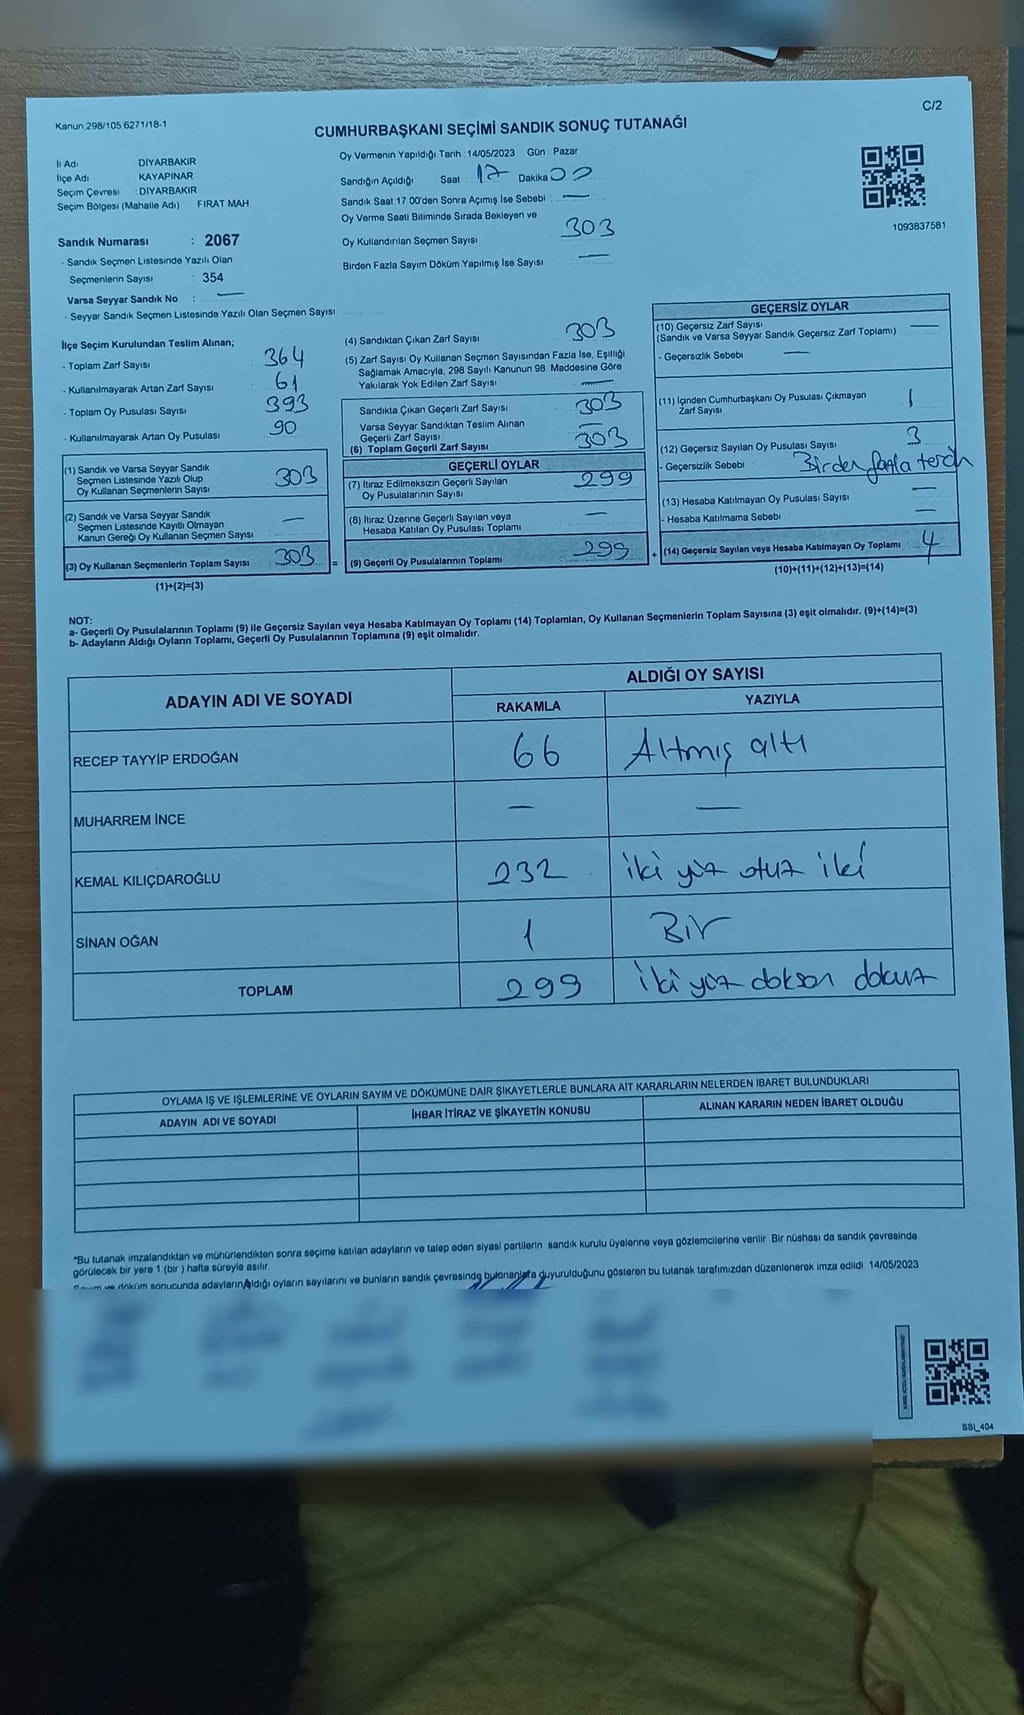 Kanun:298/105;6271/18-1
C/2
CUMHURBAŞKANI SEÇİMİ SANDIK SONUÇ TUTANAĞI
İl Adı DİYARBAKIR
İlçe Adı KAYAPINAR
Seçim Çevresi : DİYARBAKIR
Seçim Bölgesi (Mahalle Adı) FIRAT MAH
Sandık Numarası : 2067
- Sandık Seçmen Listesinde Yazılı Olan
Seçmenlerin Sayısı : 354
Varsa Seyyar Sandık No : —
- Seyyar Sandık Seçmen Listesinde Yazılı Olan Seçmen Sayısı
Oy Vermenin Yapıldığı Tarih :14/05/2023 Gün : Pazar
Sandığın Açıldığı Saat 17 Dakika 00
Sandık Saat 17 00'den Sonra Açımış İse Sebebi : —
Oy Verme Saati Bitiminde Sırada Bekleyen ve
Oy Kullandırılan Seçmen Sayısı 303
Birden Fazla Sayım Döküm Yapılmış İse Sayısı —
1093837581
İlçe Seçim Kurulundan Teslim Alınan;
- Toplam Zarf Sayısı 364
- Kullanılmayarak Artan Zarf Sayısı 61
- Toplam Oy Pusulası Sayısı 393
- Kullanılmayarak Artan Oy Pusulası 90
(1) Sandık ve Varsa Seyyar Sandık
Seçmen Listesinde Yazılı Olup
Oy Kullanan Seçmenlerin Sayısı 303
(2) Sandık ve Varsa Seyyar Sandık
Seçmen Listesinde Kayıtlı Olmayan
Kanun Gereği Oy Kullanan Seçmen Sayısı —
(3) Oy Kullanan Seçmenlerin Toplam Sayısı 303
(1)+(2)=(3)
=
(4) Sandıktan Çıkan Zarf Sayısı 303
(5) Zarf Sayısı Oy Kullanan Seçmen Sayısından Fazla İse, Eşitliği
Sağlamak Amacıyla, 298 Sayılı Kanunun 98. Maddesine Göre
Yakılarak Yok Edilen Zarf Sayısı —
Sandıkta Çıkan Geçerli Zarf Sayısı 303
Varsa Seyyar Sandıktan Teslim Alınan
Geçerli Zarf Sayısı —
(6) Toplam Geçerli Zarf Sayısı 303
GEÇERLİ OYLAR
(7) İtiraz Edilmeksizin Geçerli Sayılan
Oy Pusulalarının Sayısı 299
(8) İtiraz Üzerine Geçerli Sayılan veya
Hesaba Katılan Oy Pusulası Toplamı —
(9) Geçerli Oy Pusulalarının Toplamı 299
+
GEÇERSİZ OYLAR
(10) Geçersiz Zarf Sayısı
(Sandık ve Varsa Seyyar Sandık Geçersiz Zarf Toplamı) —
- Geçersizlik Sebebi —
(11) İçinden Cumhurbaşkanı Oy Pusulası Çıkmayan
Zarf Sayısı 1
(12) Geçersiz Sayılan Oy Pusulası Sayısı 3
- Geçersizlik Sebebi Birden fazla terch
(13) Hesaba Katılmayan Oy Pusulası Sayısı —
- Hesaba Katılmama Sebebi —
(14) Geçersiz Sayılan veya Hesaba Katılmayan Oy Toplamı 4
(10)+(11)+(12)+(13)=(14)
NOT:
a- Geçerli Oy Pusulalarının Toplamı (9) ile Geçersiz Sayılan veya Hesaba Katılmayan Oy Toplamı (14) Toplamları, Oy Kullanan Seçmenlerin Toplam Sayısına (3) eşit olmalıdır. (9)+(14)=(3)
b- Adayların Aldığı Oyların Toplamı, Geçerli Oy Pusulalarının Toplamına (9) eşit olmalıdır.
ADAYIN ADI VE SOYADI
ALDIĞI OY SAYISI
RAKAMLA YAZIYLA
RECEP TAYYİP ERDOĞAN 66 Altmış altı
MUHARREM İNCE — —
KEMAL KILIÇDAROĞLU 232 iki yüz otuz iki
SİNAN OĞAN 1 Bir
TOPLAM 299 iki yüz doksan dokuz
OYLAMA İŞ VE İŞLEMLERİNE VE OYLARIN SAYIM VE DÖKÜMÜNE DAİR ŞİKAYETLERLE BUNLARA AİT KARARLARIN NELERDEN İBARET BULUNDUKLARI
ADAYIN ADI VE SOYADI İHBAR İTİRAZ VE ŞİKAYETİN KONUSU ALINAN KARARIN NEDEN İBARET OLDUĞU
*Bu tutanak imzalandıktan ve mühürlendikten sonra seçime katılan adayların ve talep eden siyasi partilerin sandık kurulu üyelerine veya gözlemcilerine verilir. Bir nüshası da sandık çevresinde
görülecek bir yere 1 (bir ) hafta süreyle asılır
Sayım ve döküm sonucunda adayların aldığı oyların sayılarını ve bunların sandık çevresinde bulunanlara duyurulduğunu gösteren bu tutanak tarafımızdan düzenlenerek imza edildi. 14/05/2023
SSI_404